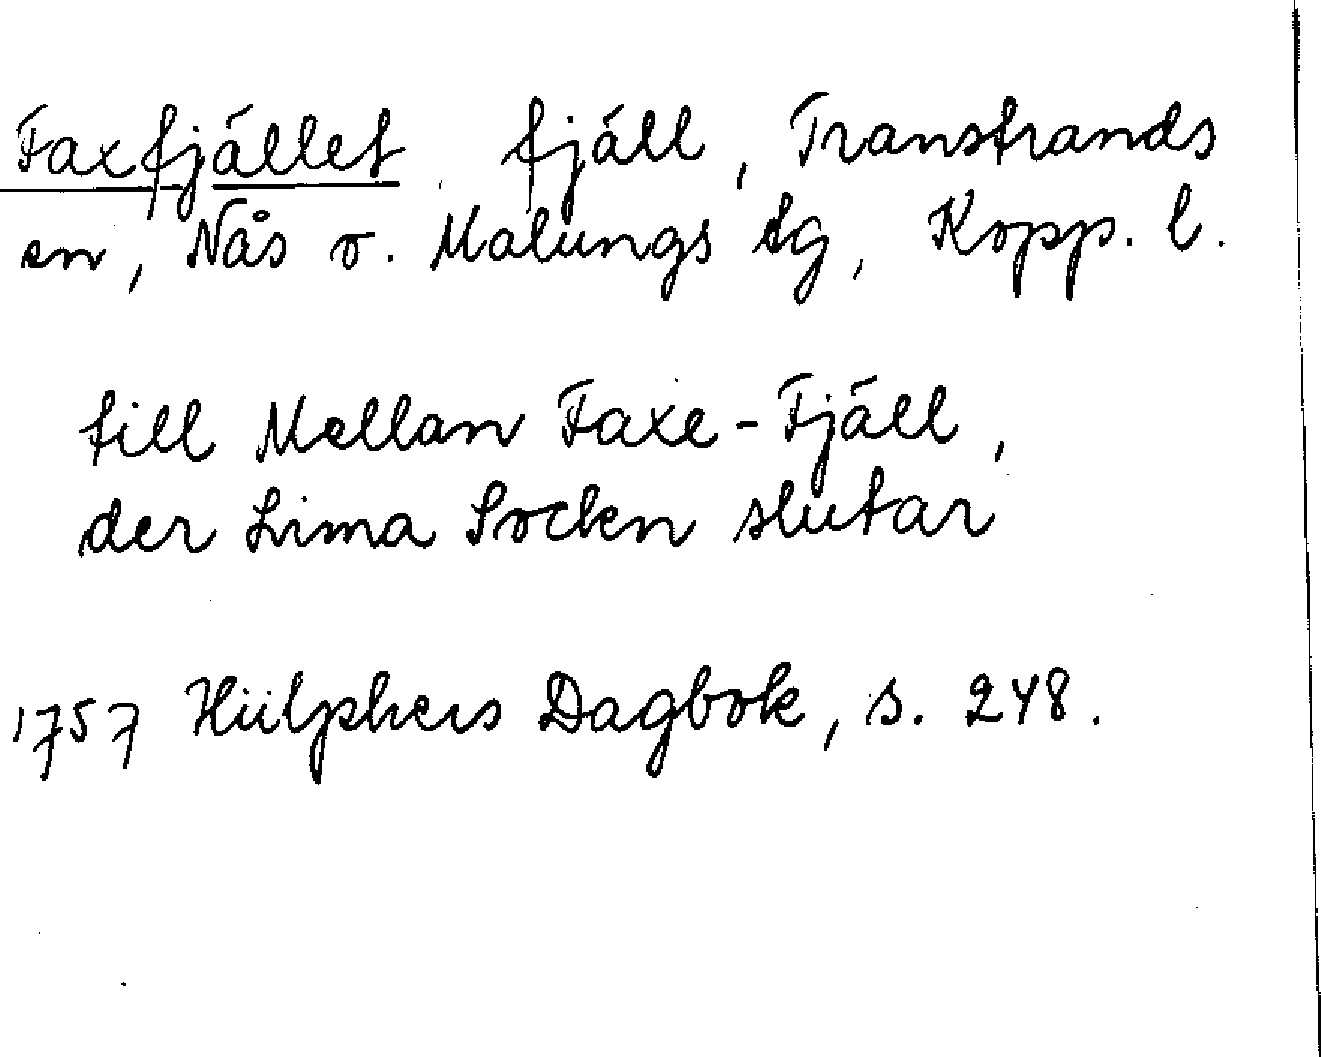 Faxfjället fjäll, Transtrands
sn, Nås o. Malungs tg, Kopp. l.
till Mellan Faxe-Fjäll,
der Lima Socken slutar
1757 Hülphers Dagbok, s. 248.